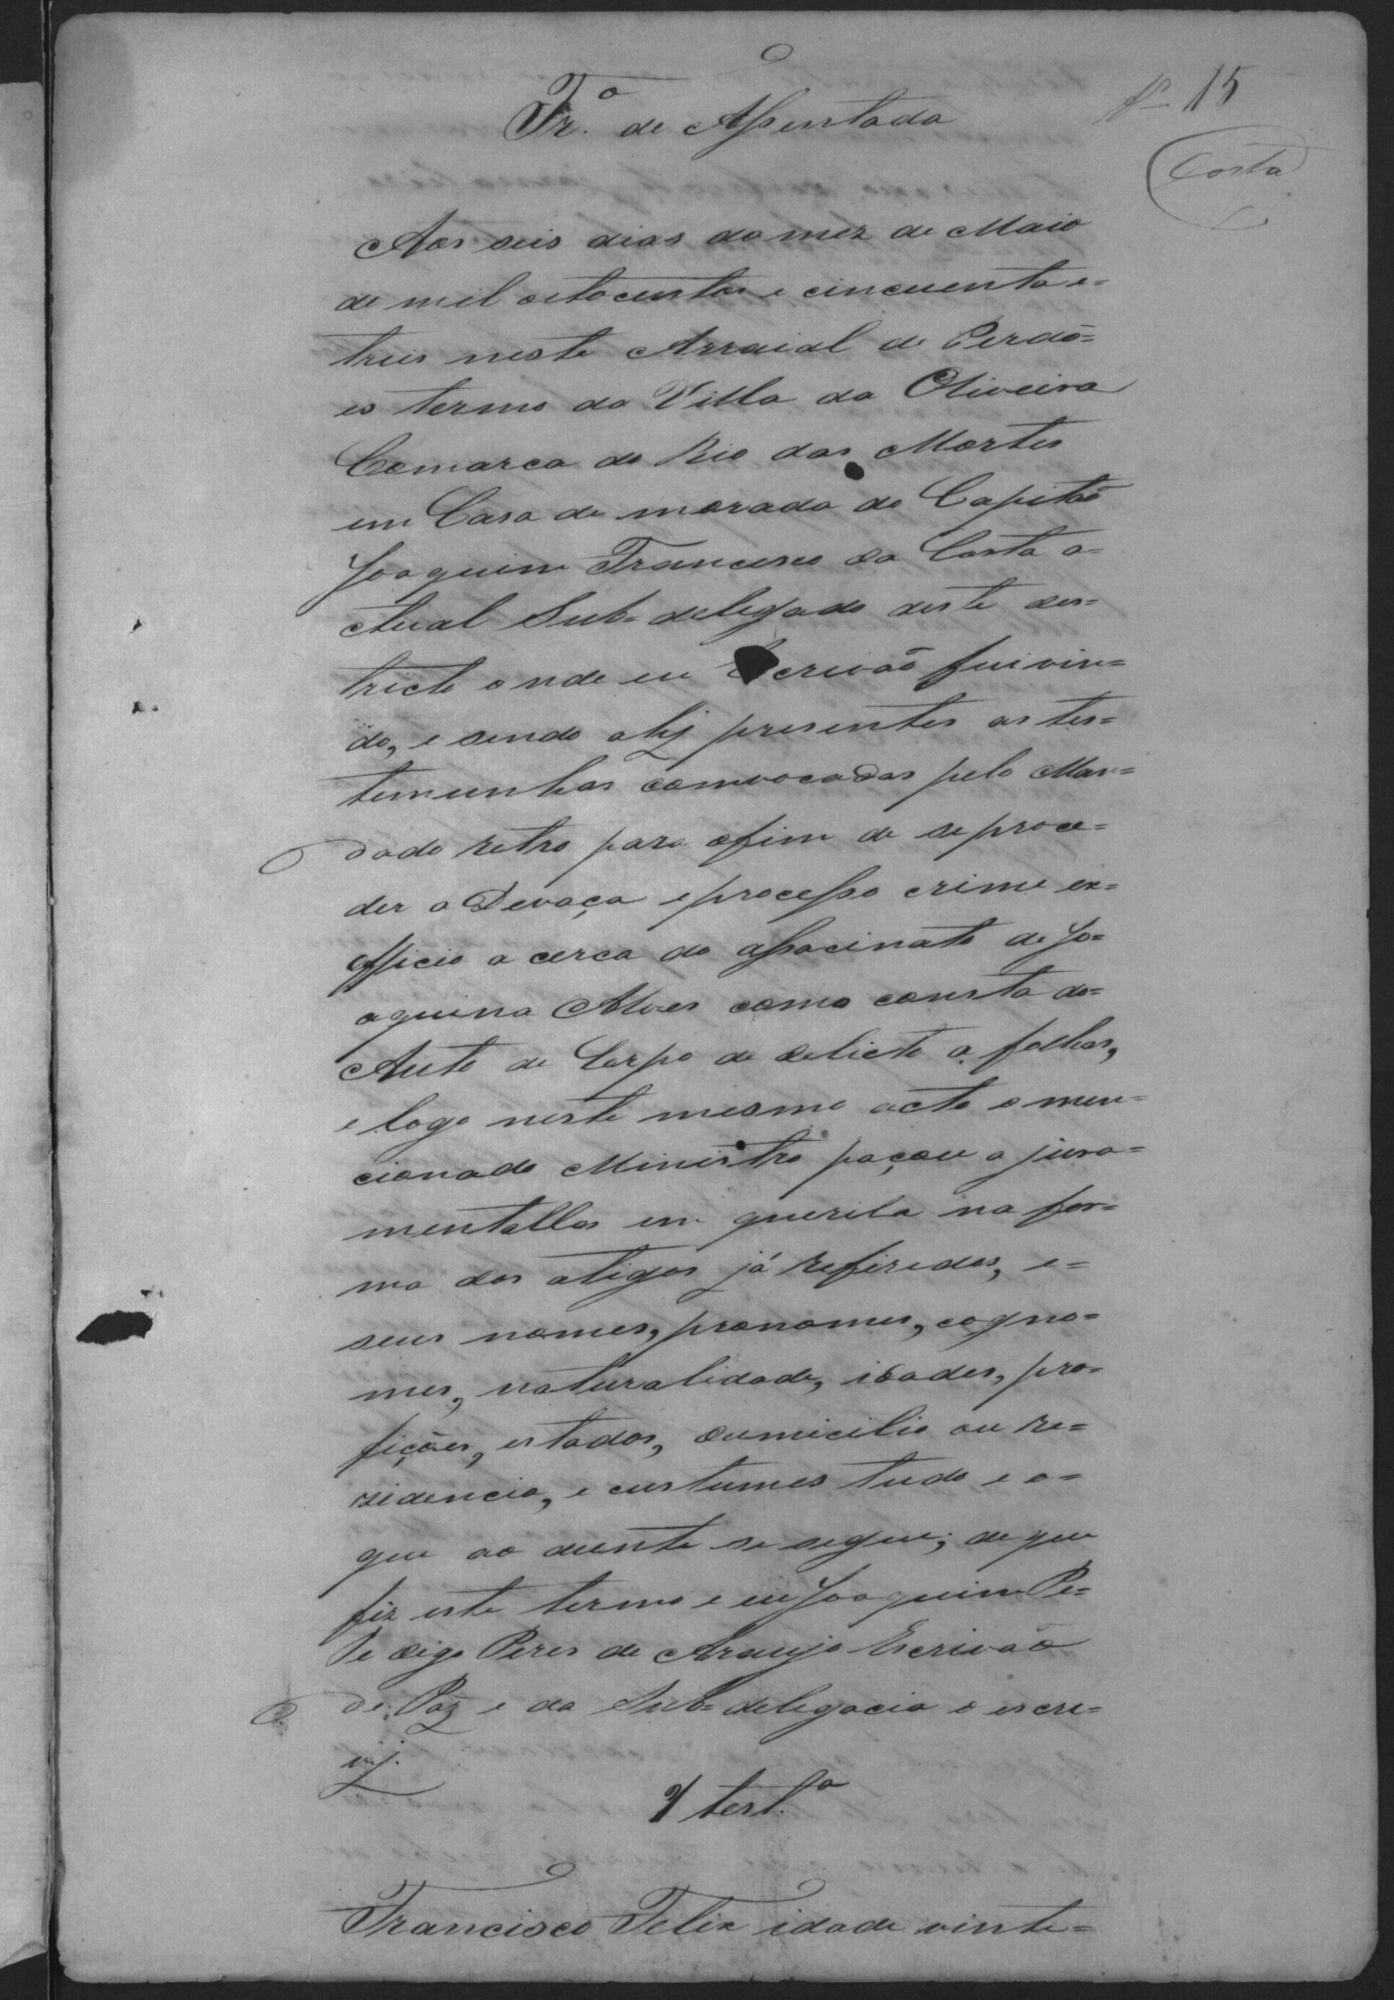 fl 15
Tr.º de Assentada
Costa
Aos seis dias do mez de Maio
de mil oitocentos e cincuenta e=
treis neste Arraial de Perdõ=
es termo da Villa da Oliveira
Comarca do Rio das Mortes
em Casa de morada do Capitão
Joaquim Francisco da Costa a=
ctual Sub=delegado deste des=
tricto onde eu Escrivão fui vin=
do, e sendo ahj presentes as tes=
temunhas comvocadas pelo Man=
dado retro para ofim de se proce=
der a Devaça e processo crime ex=
officio a cerca do assacinato de Jo=
aquina Alves como consta do=
Auto de Corpo de delicto a folhas,
e logo neste mesmo acto o men=
cionado Ministro paçou a jura=
mentallas em querela na for=
ma dos atigos já refiridos, e=
seus nomes, pronomes, cogno=
mes, naturalidade, idades, pro=
fições, estados, dumicilio ou re=
zidencia, e custumes tudo e o=
que ao diente se segue; de que
fiz este termo e eu Joaquim Pe=
Pe digo Peres de Araujo Escrivão
de Paz e da Sub=delegacia o escre=
vj.
1 test.ª
Francisco Felix idade vinte=